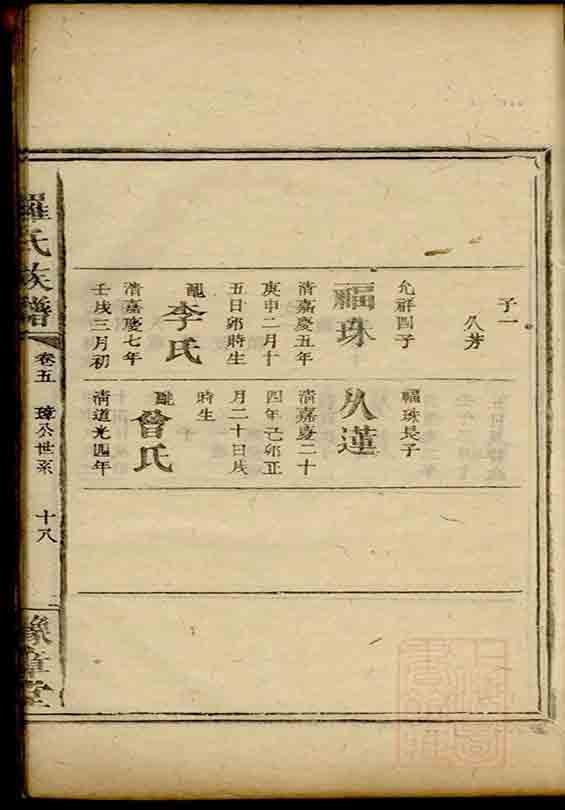 子一
八芳
允祥四子
福珠
清嘉慶五年
庚申二月十
五日卯時生
配
李氏
清嘉慶七年
壬戌三月初
福珠長子
八蓮
清嘉慶二十
四年己卯正
月二十日戌
時生
配
曾氏
清道光四年
羅氏族譜
卷五
璋公世系
十八
豫章堂